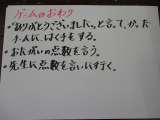 ゲームのおわり
・ありがとうございました。と言って、かった
チームに、はく手をする。
・おたがいの点数を言う。
・先生に点数を言いに行く。